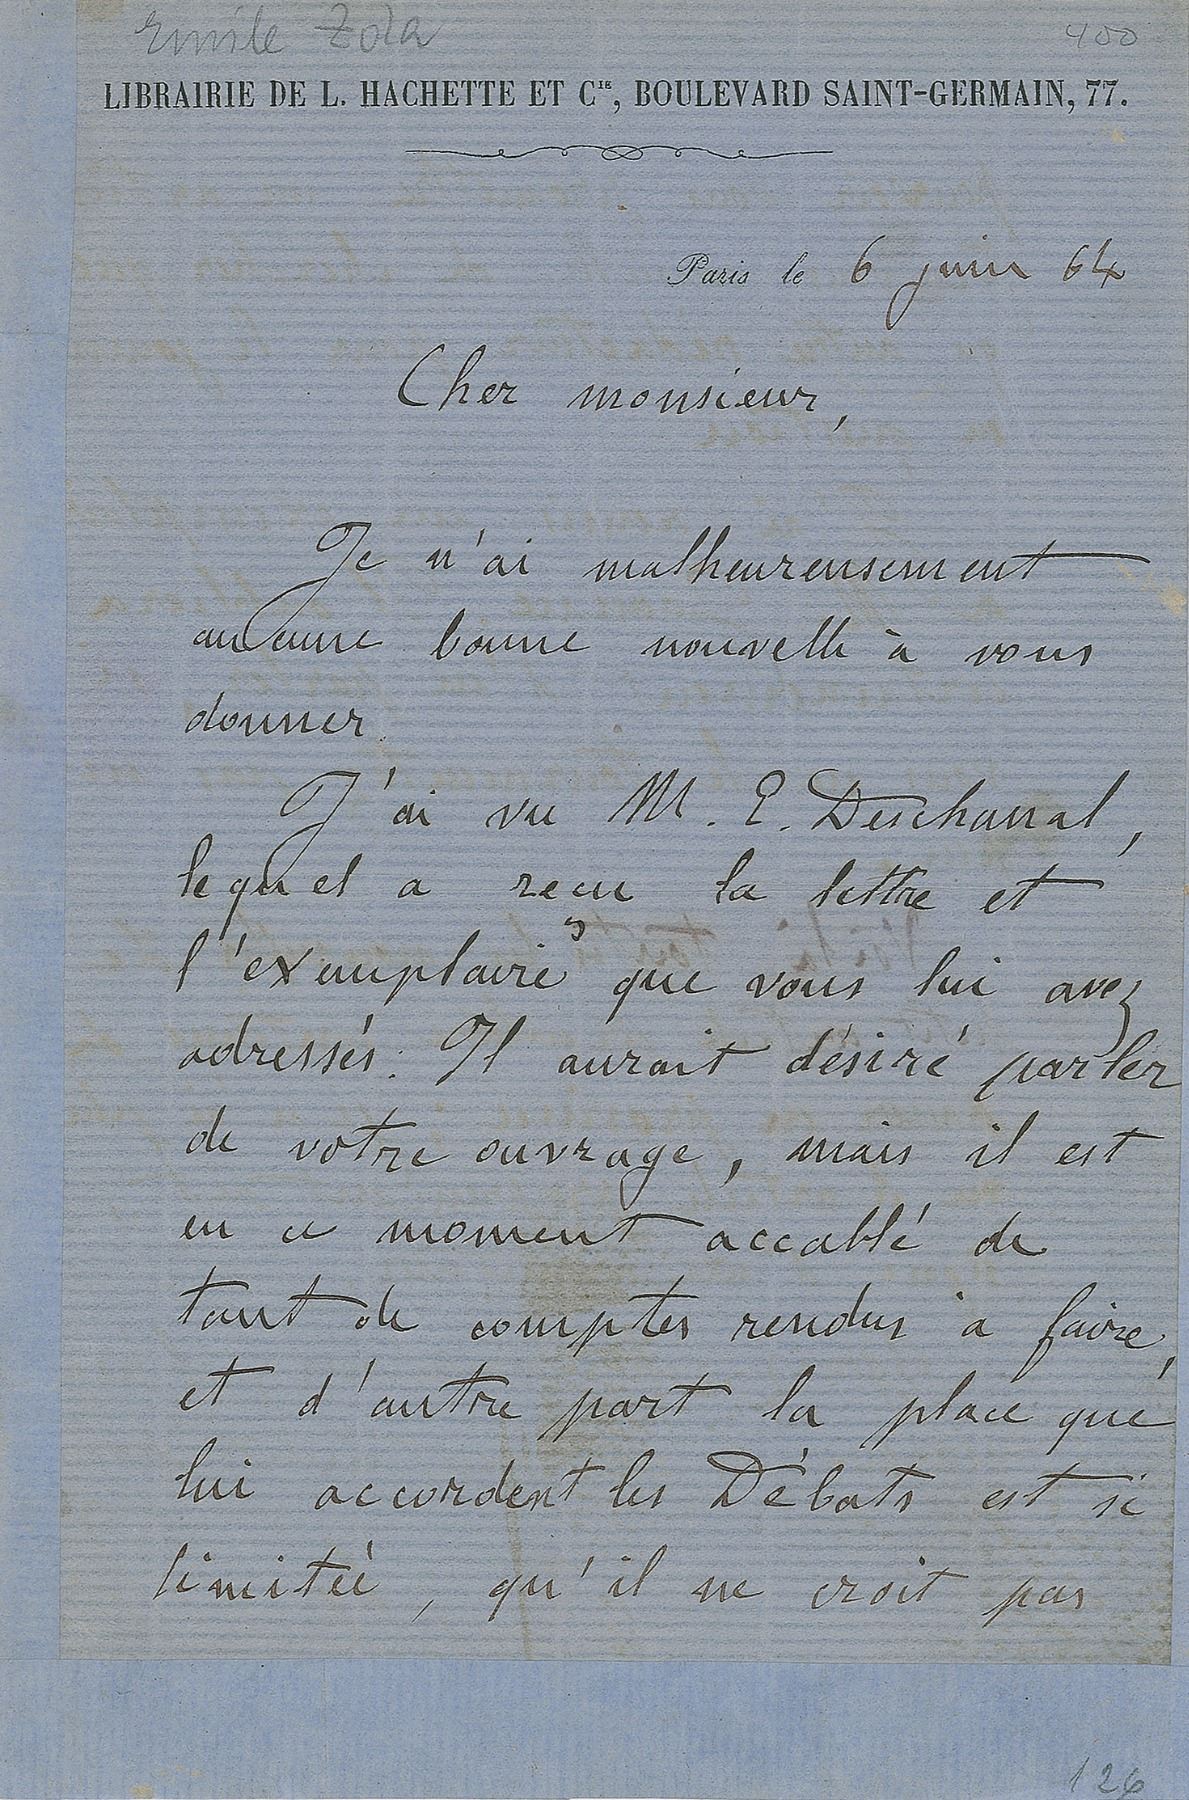 Emile Zola
400
LIBRAIRIE DE L. HACHETTE ET Cie, BOULEVARD SAINT-GERMAIN, 77.
Paris le 6 juin 64
Cher monsieur,
Je n'ai malheureusement
aucune bonne nouvelle à vous
donner.
J'ai vu M. E. Deschanal,
lequel a reçu la lettre et
l'exemplaire que vous lui avez
adressés. Il aurait désiré parler
de votre ouvrage, mais il est
en ce moment accablé de
tant de comptes rendus à faire,
et d'autre part la place que
lui accordent les Débats est si
limitée, qu'il ne croit pas
126